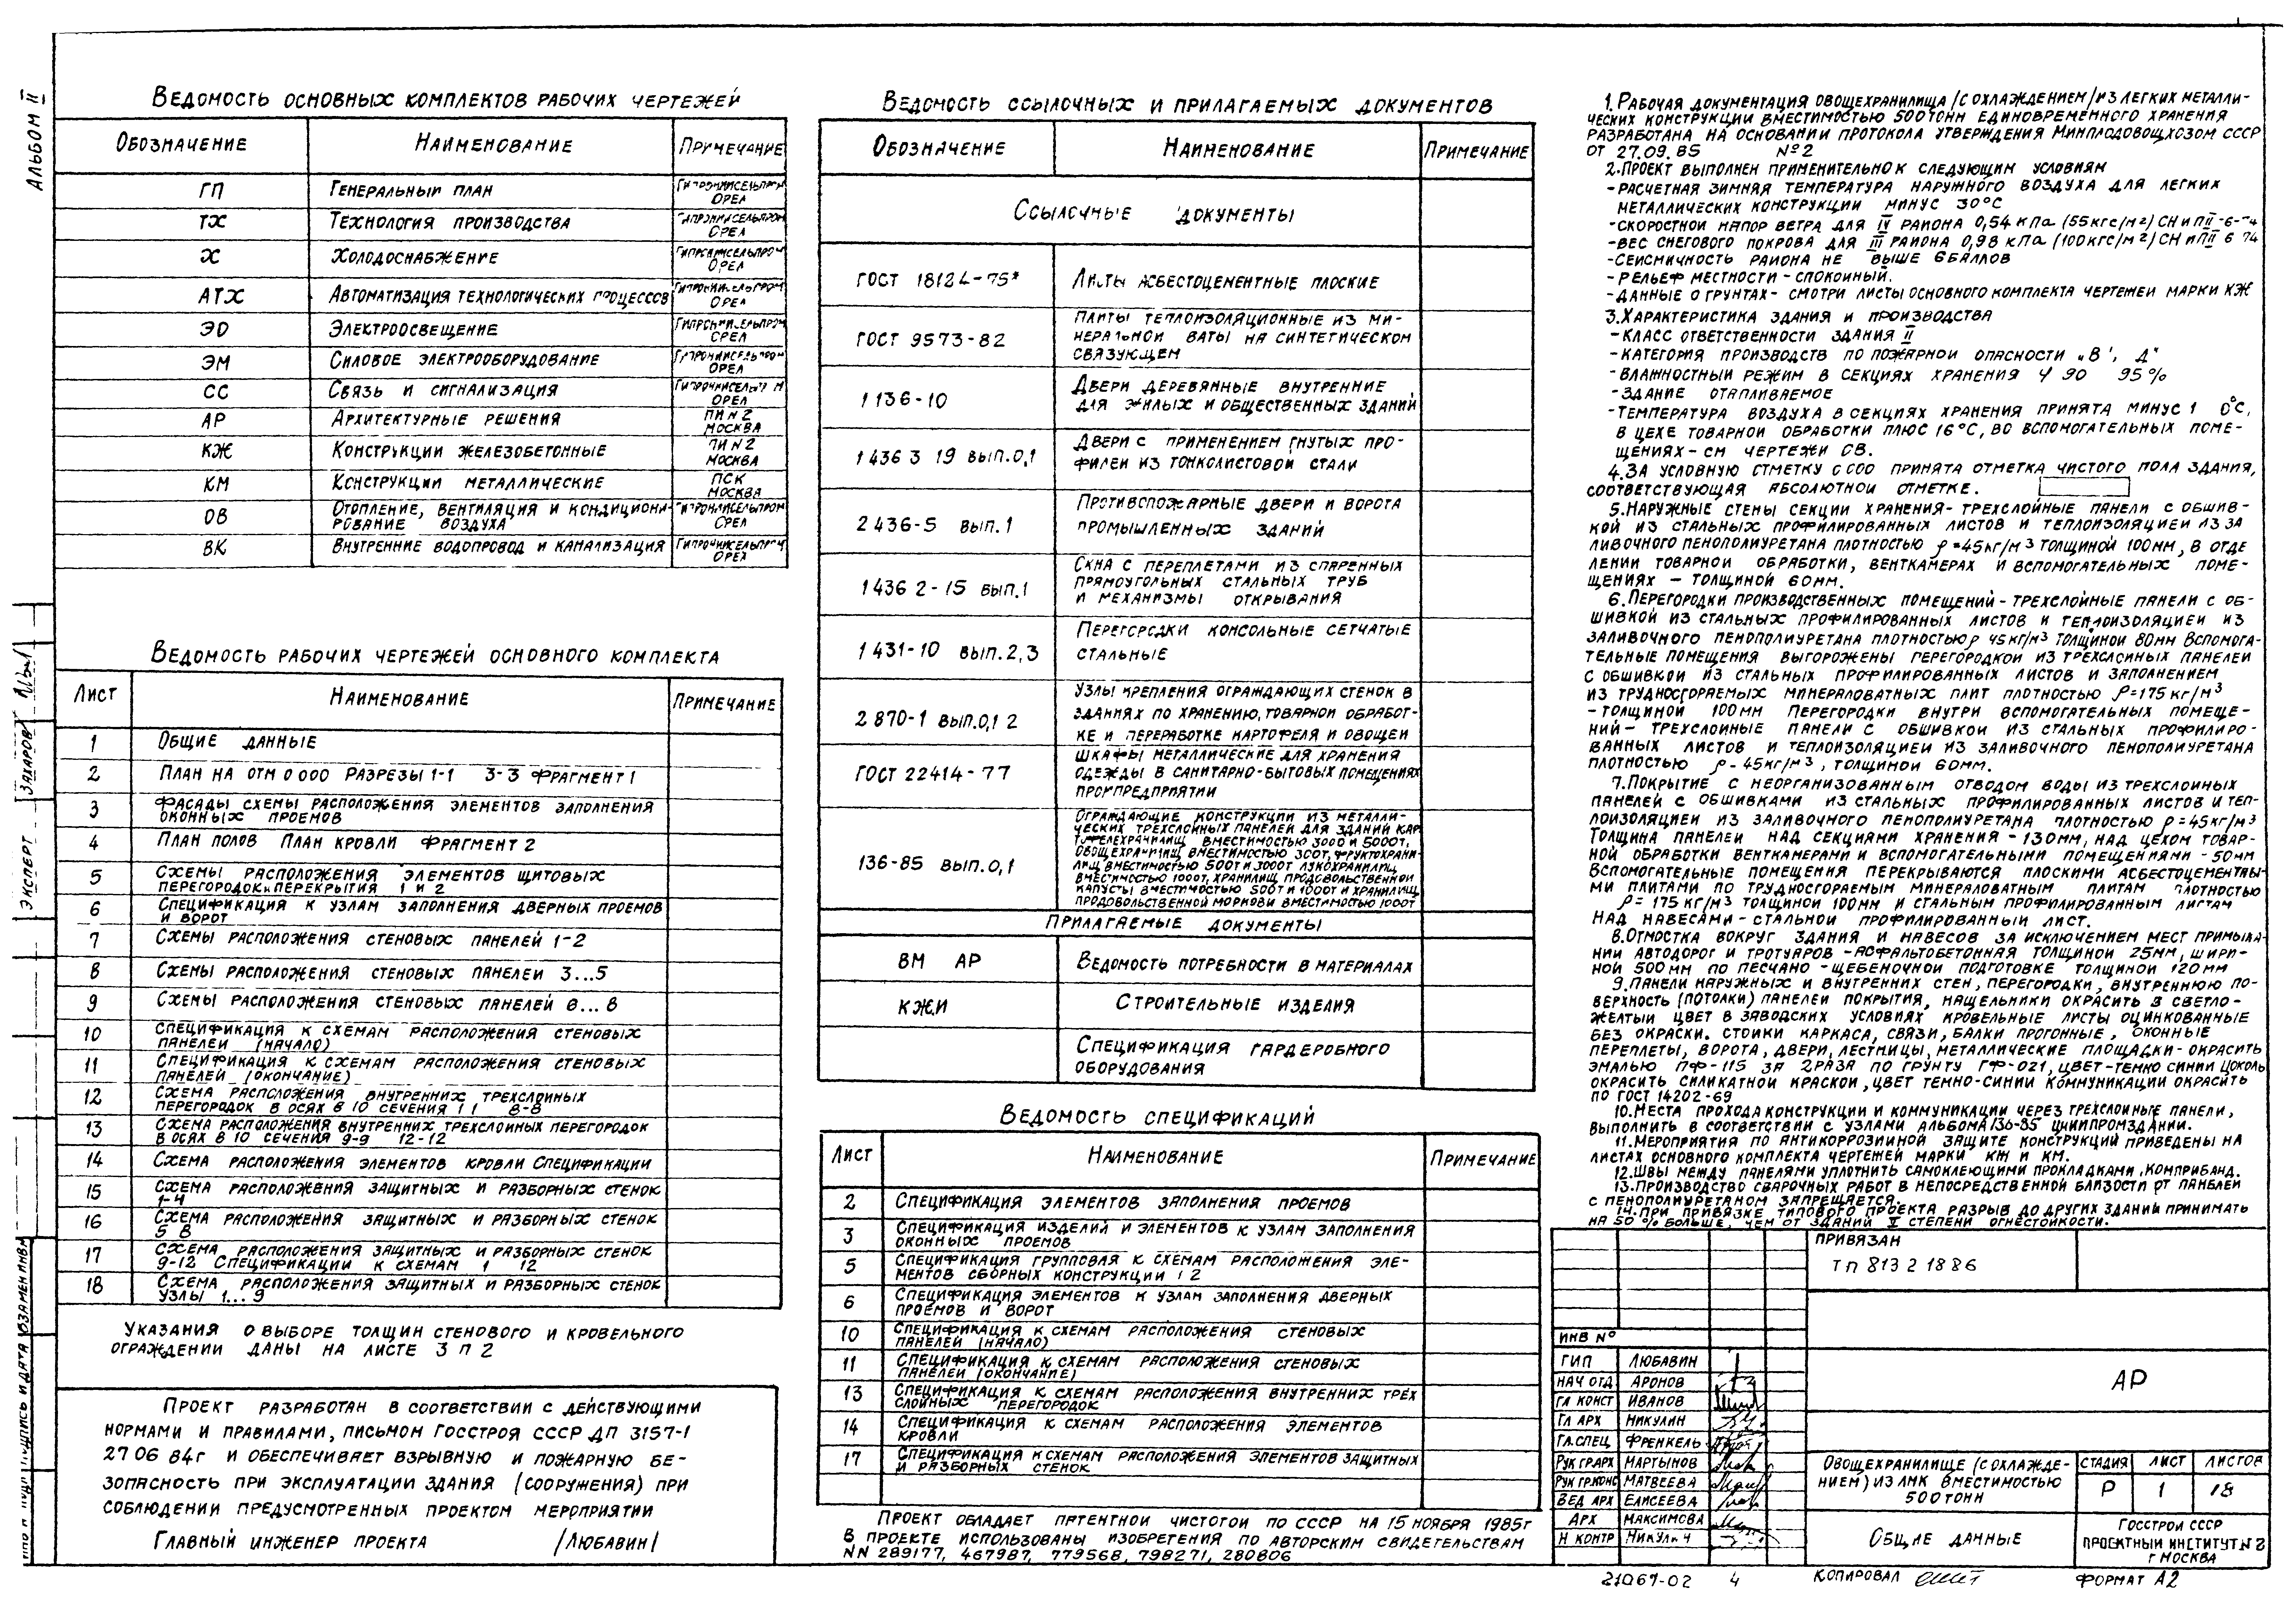 Альбом II
Ведомость основных комплектов рабочих чертежей
Обозначение Наименование Примечание
ГП Генеральный план Гипронисельпром Орел
ТХ Технология производства Гипронисельпром Орел
Х Холодоснабжение Гипронисельпром Орел
АТХ Автоматизация технологических процессов Гипронисельпром Орел
ЭО Электроосвещение Гипронисельпром Орел
ЭМ Силовое электрооборудование Гипронисельпром Орел
СС Связь и сигнализация Гипронисельпром Орел
АР Архитектурные решения ПИ N 2 Москва
КЖ Конструкции железобетонные ПИ N 2 Москва
КМ Конструкции металлические ПСК Москва
ОВ Отопление, вентиляция и кондициони-
рование воздуха Гипронисельпром Орел
ВК Внутренние водопровод и канализация Гипронисельпром Орел
Ведомость рабочих чертежей основного комплекта
Лист Наименование Примечание
1 Общие данные
2 План на отм 0 000 Разрезы 1-1 3-3 Фрагмент 1
3 Фасады схемы расположения элементов заполнения
оконных проемов
4 План полов План кровли Фрагмент 2
5 Схемы расположения элементов щитовых
перегородок и перекрытия 1 и 2
6 Спецификация к узлам заполнения дверных проемов
и ворот
7 Схемы расположения стеновых панелей 1-2
8 Схемы расположения стеновых панелей 3...5
9 Схемы расположения стеновых панелей 6...8
10 Спецификация к схемам расположения стеновых
панелей (начало)
11 Спецификация к схемам расположения стеновых
панелей (окончание)
12 Схема расположения внутренних трехслойных
перегородок в осях 8 10 сечения 1 1 8-8
13 Схема расположения внутренних трехслойных перегородок
в осях 8 10 сечения 9-9 12-12
14 Схема расположения элементов кровли Спецификации
15 Схема расположения защитных и разборных стенок
1-4
16 Схема расположения защитных и разборных стенок
5 8
17 Схема расположения защитных и разборных стенок
9-12 Спецификации к схемам 1 12
18 Схема расположения защитных и разборных стенок
узлы 1...9
Указания о выборе толщин стенового и кровельного
ограждении даны на листе 3 п 2
Проект разработан в соответствии с действующими
нормами и правилами, письмом Госстроя СССР ДП 3157-1
27 06 84г и обеспечивает взрывную и пожарную бе-
зопасность при эксплуатации здания (сооружения) при
соблюдении предусмотренных проектом мероприятии
Главный инженер проекта /Любавин/
Ведомость ссылочных и прилагаемых документов
Обозначение Наименование Примечание
Ссылочные документы
ГОСТ 18124-75* Листы асбестоцементные плоские
ГОСТ 9573-82 Плиты теплоизоляционные из ми-
неральной ваты на синтетическом
связующем
1 136-10 Двери деревянные внутренние
для жилых и общественных зданий
1 436 3 19 вып.0,1 Двери с применением гнутых про-
филей из тонколистовой стали
2 436-5 вып.1 Противопожарные двери и ворота
промышленных зданий
1 436 2-15 вып.1 Окна с переплетами из спаренных
прямоугольных стальных труб
и механизмы открывания
1 431-10 вып.2,3 Перегородки консольные сетчатые
стальные
2 870-1 вып.0,1 2 Узлы крепления ограждающих стенок в
зданиях по хранению, товарной обработ-
ке и переработке картофеля и овощей
ГОСТ 22414-77 Шкафы металлические для хранения
одежды в санитарно-бытовых помещениях
промпредприятии
136-85 вып.0,1 Ограждающие конструкции из металли-
ческих трехслойных панелей для зданий кар
тофелехранилищ вместимостью 3000 и 5000т,
овощехранилищ вместимостью 300т, фруктохрани-
лищ вместимостью 500т и 3000т лукохранилищ
вместимостью 1000т, хранилищ продовольственной
капусты вместимостью 500т и 1000т и хранилищ
продовольственной моркови вместимостью 1000т
Прилагаемые документы
ВМ АР Ведомость потребности в материалах
КЖ.И Строительные изделия
Спецификация гардеробного
оборудования
Ведомость спецификаций
Лист Наименование Примечание
2 Спецификация элементов заполнения проемов
3 Спецификация изделий и элементов к узлам заполнения
оконных проемов
5 Спецификация групповая к схемам расположения эле-
ментов сборных конструкции 1 2
6 Спецификация элементов к узлам заполнения дверных
проемов и ворот
10 Спецификация к схемам расположения стеновых
панелей (начало)
11 Спецификация к схемам расположения стеновых
панелей (окончание)
13 Спецификация к схемам расположения внутренних трех
слойных перегородок
14 Спецификация к схемам расположения элементов
кровли
17 Спецификация к схемам расположения элементов защитных
и разборных стенок
Проект обладает патентной чистотой по СССР на 15 ноября 1985г
В проекте использованы изобретения по авторским свидетельствам
NN 289177, 467987, 779568, 798271, 280806
1. Рабочая документация овощехранилища /с охлаждением/ из легких металли-
ческих конструкции вместимостью 500 тонн единовременного хранения
разработана на основании протокола утверждения Минплодовощхозом СССР
от 27.09.85 №2
2. Проект выполнен применительно к следующим условиям
-расчетная зимняя температура наружного воздуха для легких
металлических конструкции минус 30°С
-скоростной напор ветра для IV района 0,54 кПа (55кгс/м2) СНиП II-6-74
-вес снегового покрова для III района 0,98 кПа (100кгс/м2) СНиП II 6 74
-сейсмичность района не выше 6 баллов
-рельеф местности - спокойный.
-данные о грунтах - смотри листы основного комплекта чертежей марки КЖ
3. Характеристика здания и производства
-класс ответственности здания II
-категория производств по пожарной опасности „В", Д"
-влажностный режим в секциях хранения φ 90 95%
-здание отапливаемое
-температура воздуха в секциях хранения принята минус 1 0°С,
в цехе товарной обработки плюс 16°С, во вспомогательных поме-
щениях - см чертежи ОВ.
4. За условную отметку 0 000 принята отметка чистого пола здания,
соответствующая абсолютной отметке.
5. Наружные стены секции хранения - трехслойные панели с обшив-
кой из стальных профилированных листов и теплоизоляцией из за
ливочного пенополиуретана плотностью ρ=45кг/м3 толщиной 100мм, в отде
лении товарной обработки, венткамерах и вспомогательных поме-
щениях - толщиной 60мм.
6. Перегородки производственных помещений - трехслойные панели с об-
шивкой из стальных профилированных листов и теплоизоляцией из
заливочного пенополиуретана плотностью ρ 45кг/м3 толщиной 80мм Вспомога-
тельные помещения выгорожены перегородкой из трехслойных панелей
с обшивкой из стальных профилированных листов и заполнением
из трудносгораемых минераловатных плит плотностью ρ=175 кг/м3
-толщиной 100мм Перегородки внутри вспомогательных помеще-
ний - трехслойные панели с обшивкой из стальных профилиро-
ванных листов и теплоизоляцией из заливочного пенополиуретана
плотностью ρ-45кг/м3, толщиной 60мм.
7. Покрытие с неорганизованным отводом воды из трехслойных
панелей с обшивками из стальных профилированных листов и теп-
лоизоляцией из заливочного пенополиуретана плотностью ρ=45кг/м3
Толщина панелей над секциями хранения - 130мм, над цехом товар-
ной обработки венткамерами и вспомогательными помещениями - 50мм
Вспомогательные помещения перекрываются плоскими асбестоцементны-
ми плитами по трудносгораемым минераловатным плитам плотностью
ρ=175 кг/м3 толщиной 100мм и стальным профилированным листам
Над навесами - стальной профилированный лист.
8. Отмостка вокруг здания и навесов за исключением мест примыка-
нии автодорог и тротуаров - асфальтобетонная толщиной 25мм, шири-
ной 500мм по песчано-щебеночной подготовке толщиной 120мм
9. Панели наружных и внутренних стен, перегородки, внутреннюю по-
верхность (потолки) панелей покрытия, нащельники окрасить в светло-
желтый цвет в заводских условиях кровельные листы оцинкованные
без окраски. Стойки каркаса, связи, балки прогонные, оконные
переплеты, ворота, двери, лестницы, металлические площадки - окрасить
эмалью ПФ-115 за 2 раза по грунту ГФ-021, цвет - темно синий Цоколь
окрасить силикатной краской, цвет темно-синий Коммуникации окрасить
по ГОСТ 14202-69
10. Места прохода конструкции и коммуникации через трехслойные панели,
выполнить в соответствии с узлами альбома 136-85 ЦНИИпромзданий.
11. Мероприятия по антикоррозийной защите конструкций приведены на
листах основного комплекта чертежей марки КЖ и КМ.
12. Швы между панелями уплотнить самоклеющими прокладками „Комприбанд.
13. Производство сварочных работ в непосредственной близости от панелей
с пенополиуретаном запрещается.
14. При привязке типового проекта разрыв до других зданий принимать
на 50 % больше, чем от зданий V степени огнестойкости.
Привязан
ТП 813 2 18 86
Инв №
ГИП Любавин
Нач отд Аронов
Гл конст Иванов
Гл арх Никулин
Гл. спец Френкель
Рук гр арх Мартынов
Рук гр.конс Матвеева
Вед арх Елисеева
Арх Максимова
Н контр Никулин
АР
Овощехранилище (с охлажде-
нием) из ЛМК вместимостью
500 тонн
Стадия Лист Листов
Р 1 18
Общие данные
Госстрой СССР
Проектный институт N 2
г Москва
21067-02 4
Копировал
Формат А2
Эксперт Захаров
Подпись и дата
Взамен инв N